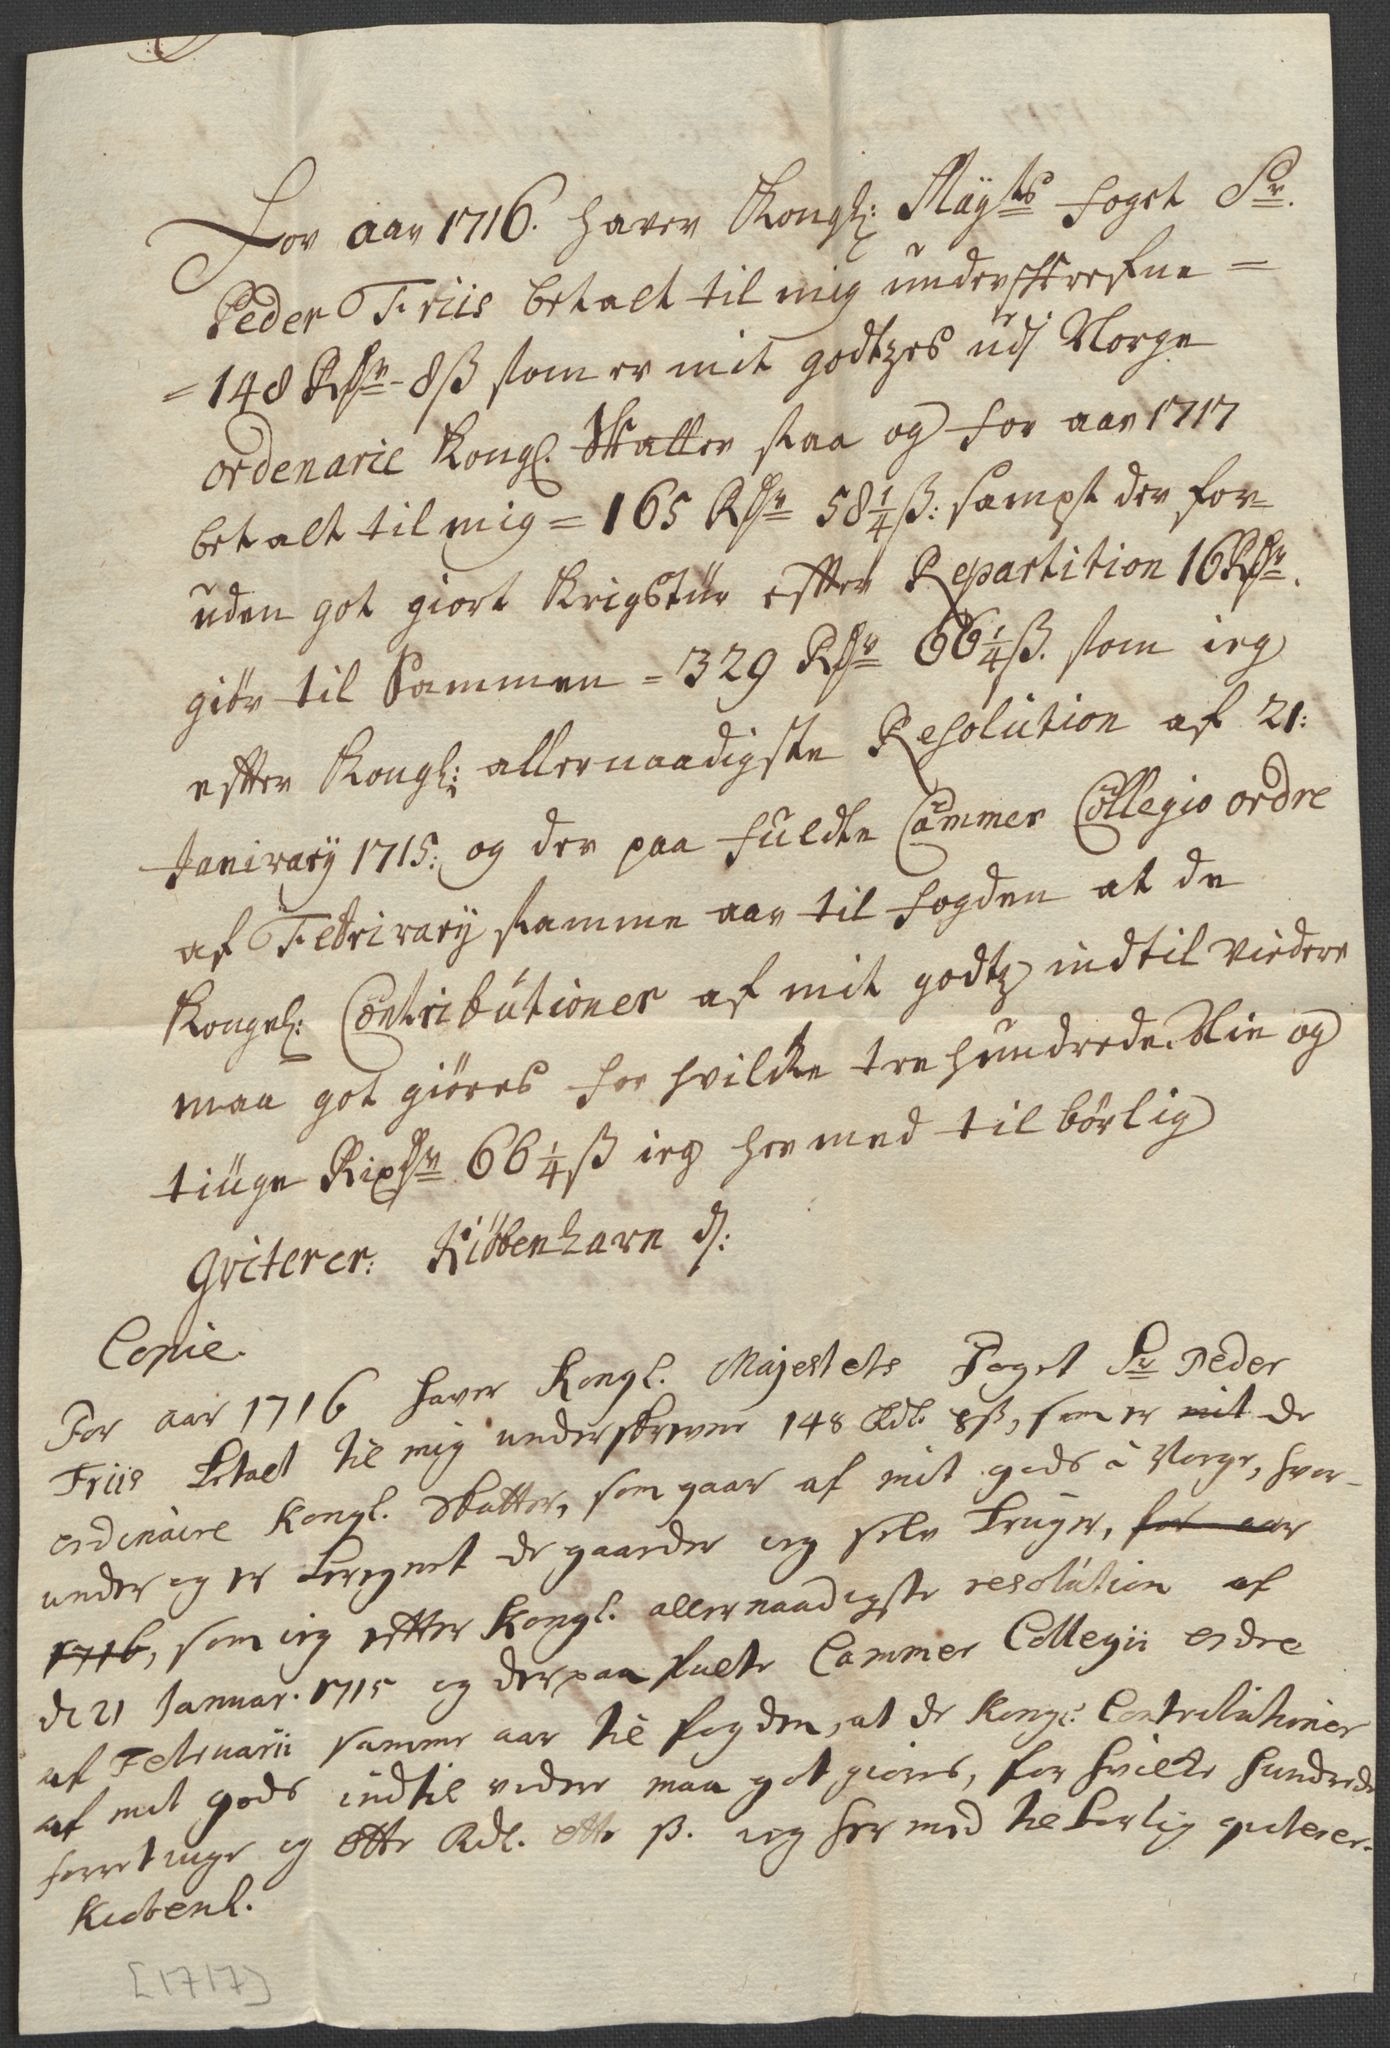 For aar 1716. hafver Kongl: Maÿts foget Sr.
Peder Friis betalt til mig underskrefne =
= 148 Rdr - 8 ß som er mit godtzes udj Norge
ordenarie Kongl. Skatter staa og for aar 1717
betalt til mig = 165 Rdr 58 1/4 ß: sampt der for-
uden got giort Krigstür effter Repartition 16 Rdr.
giör til Sammen = 329 Rdr 66 1/4 ß. som ieg
effter Kongl: allernaadigste Resolution af 21:
Janivarÿ 1715: og der paa fuldte Cammer Collegio ordre
af Febrivarÿ samme aar til fogden at de
Kongel: Contributioner af mit godtz indtil viedere
maa got giöres for hvilcke tre hundrede Nie og
tiüge Rixdr 66 1/4 ß ieg her med tilbörlig
Qviterer: Kiöbenhavn d:
Copie.
For aar 1716 haver Kongl. Majestets Foget Sr Peder
Friis betalt til mig underskrevne 148 Rdl. 8 ß, som er mit de
ordinaire Kongl. Skatter, som gaar af mit gods i Norge, hvor-
under og er beregnet de gaarder ieg selv bruger, for aar
1716, som ieg effter Kongl. allernaadigste resolution af
d. 21 Januar. 1715 og derpaa fulte Cammer Collegii ordre
af Februarii samme aar til fogden, at de Kongl. Contributioner
af mit gods indtil vidre maa got giöres, for hvilke hundrede
førretiuge og otte Rdl. otte ß. ieg her med tilbørlig qviterer.
Kiøbenh.
[1717]